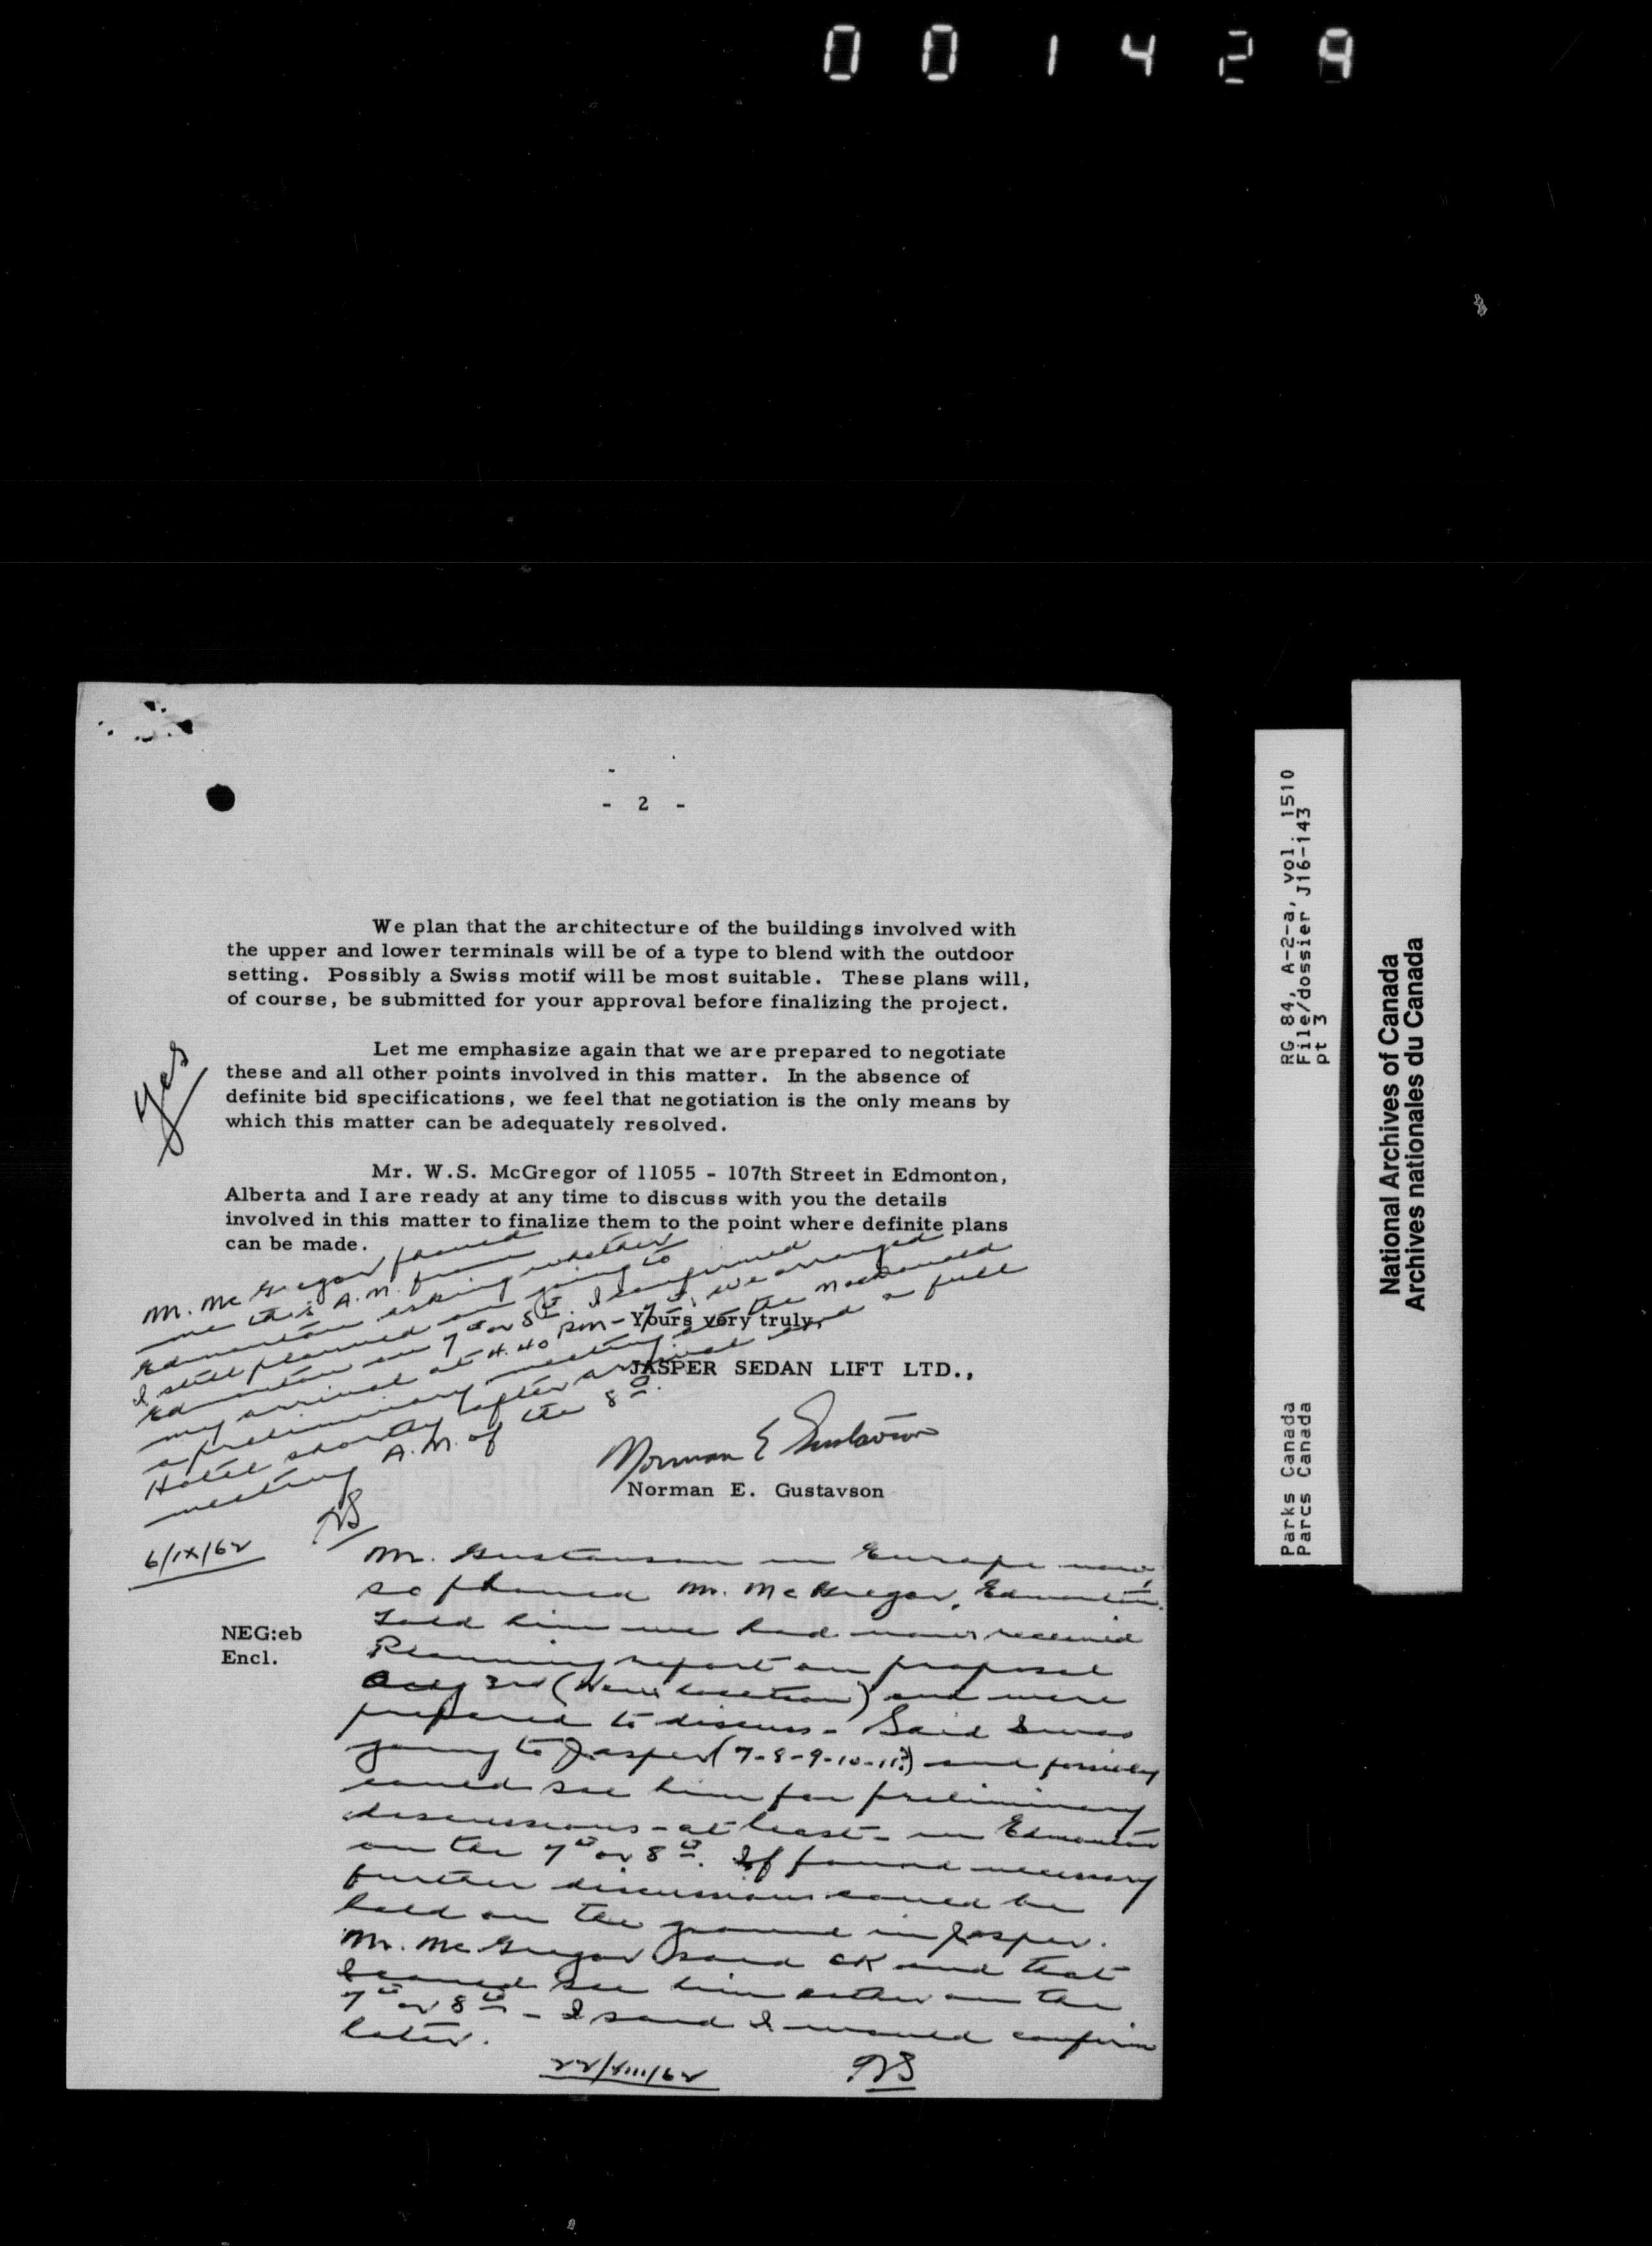 001429
- 2 -
We plan that the architecture of the buildings involved with
the upper and lower terminals will be of a type to blend with the outdoor
setting. Possibly a Swiss motif will be most suitable. These plans will,
of course, be submitted for your approval before finalizing the project.
Let me emphasize again that we are prepared to negotiate
these and all other points involved in this matter. In the absence of
definite bid specifications, we feel that negotiation is the only means by
which this matter can be adequately resolved.
Yes
Mr. W.S. McGregor of 11055 - 107th Street in Edmonton,
Alberta and I are ready at any time to discuss with you the details
involved in this matter to finalize them to the point where definite plans
can be made.
Mr. McGregor phoned
me this A.M. from
Edmonton asking whether
I still planned on going to
Edmonton on 7th or 8th. I confirmed
my arrival at 4.40 pm - 7th; we arranged
a preliminary meeting at the Macdonald
Hotel shortly after arrival and a full
meeting A.M. of the 8th.
6/IX/62
Yours very truly,
JASPER SEDAN LIFT LTD.,
Norman E Gustavson
Norman E. Gustavson
NEG:eb
Encl.
Mr. Gustavson in Europe now,
so phoned Mr. McGregor, Edmonton.
Told him we had now received
Planning report on proposal
Aug 3rd (New location) and were
prepared to discuss - Said I was
going to Jasper (7-8-9-10-11?) and possibly
could see him for preliminary
discussions - at least - in Edmonton
on the 7th or 8th. If found necessary
further discussions could be
held on the ground in Jasper.
Mr. McGregor said OK and that
I could see him either on the
7th or 8th - I said I would confirm
later.
22/VIII/62
RG 84, A-2-a, vol. 1510
File/dossier J16-143
pt 3
Parks Canada
Parcs Canada
National Archives of Canada
Archives nationales du Canada